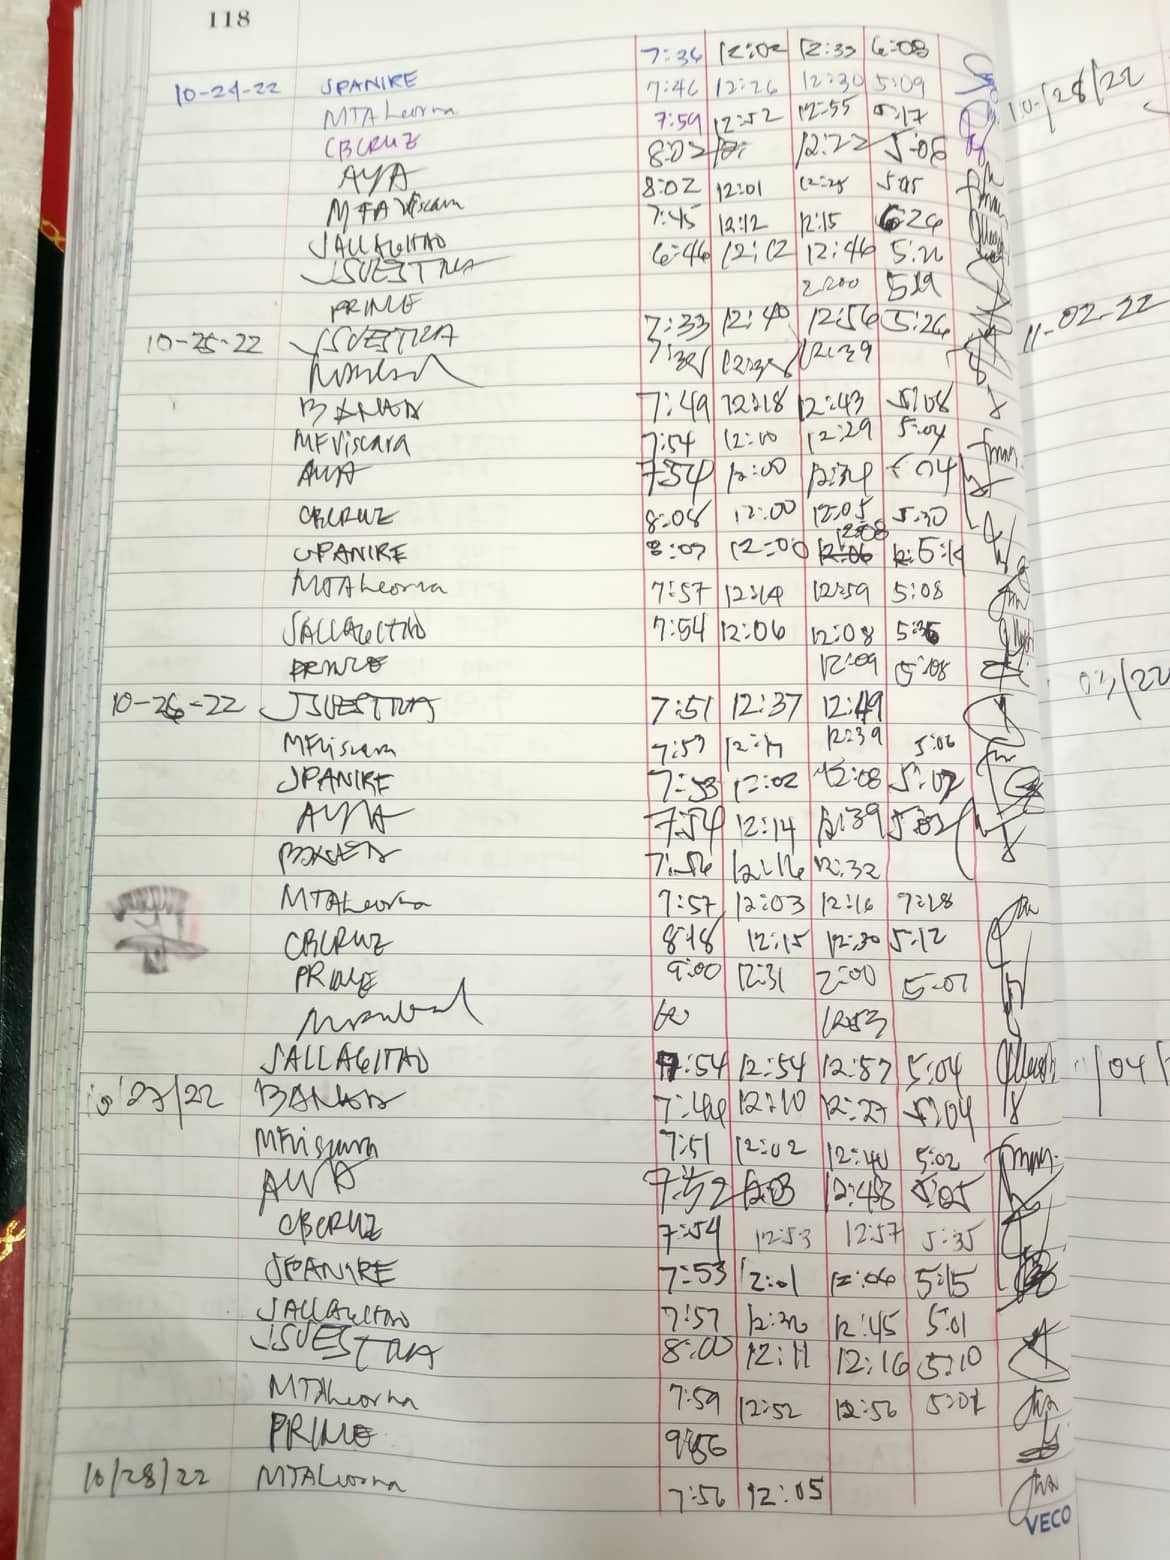 118
10-24-22 JPANIRE 7:36 12:02 12:33 6:08
MTALeorna 7:46 12:26 12:30 5:09
CBCRUZ 7:59 12:52 12:55 5:17
AYA 8:02 12:22 5:08
MFAViscara 8:02 12:01 12:28 5:05
JALLAGITAO 7:45 12:12 12:15 6:26
JSVESTRA 6:46 12:12 12:46 5:21
PRINCE 2:00 5:19
10-25-22 JSVESTRA 7:33 12:40 12:56 5:26
12:39
7:49 12:18 12:43 5:08
MFViscara 7:54 12:10 12:29 5:04
AYA 7:54 12:00 12:34 5:04
CBCRUZ 8:08 12:00 12:05 5:30
JPANIRE 8:09 12:00 12:08 5:14
MTALeorna 7:57 12:14 12:59 5:08
JALLAGITAO 7:54 12:06 12:08 5:36
PRINCE 12:09 5:08
10-26-22 JSVESTRA 7:51 12:37 12:49
MFViscara 7:53 12:17 12:39 5:06
JPANIRE 7:53 12:02 12:08 5:07
AYA 7:54 12:14 12:39
7:56 12:16 12:32
MTALeorna 7:57 12:03 12:16 7:28
CBCRUZ 8:18 12:15 12:30 5:12
PRINCE 9:00 12:31 2:00 5:07
12:53
JALLAGITAO 7:54 12:54 12:57 5:04
10/27/22 7:44 12:10 12:27 5:04
MFViscara 7:51 12:02 12:40 5:02
AYA 7:52 12:03 12:48 5:05
CBCRUZ 7:54 12:53 12:57 5:35
JPANIRE 7:53 12:01 12:06 5:15
JALLAGITAO 7:57 12:30 12:45 5:01
JSVESTRA 8:00 12:11 12:16 5:10
MTALeorna 7:59 12:52 12:56 5:07
PRINCE 9:56
10/28/22 MTALeorna 7:56 12:05
VECO
10/28/22
11-02-22
03/22
/04/